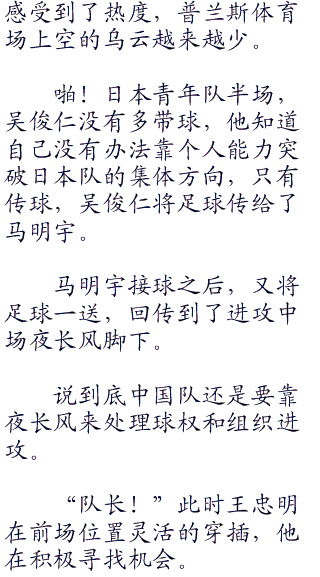 感受到了热度，普兰斯体育
场上空的乌云越来越少。
啪！日本青年队半场，
吴俊仁没有多带球，他知道
自己没有办法靠个人能力突
破日本队的集体方向，只有
传球，吴俊仁将足球传给了
马明宇。
马明宇接球之后，又将
足球一送，回传到了进攻中
场夜长风脚下。
说到底中国队还是要靠
夜长风来处理球权和组织进
攻。
“队长！”此时王忠明
在前场位置灵活的穿插，他
在积极寻找机会。